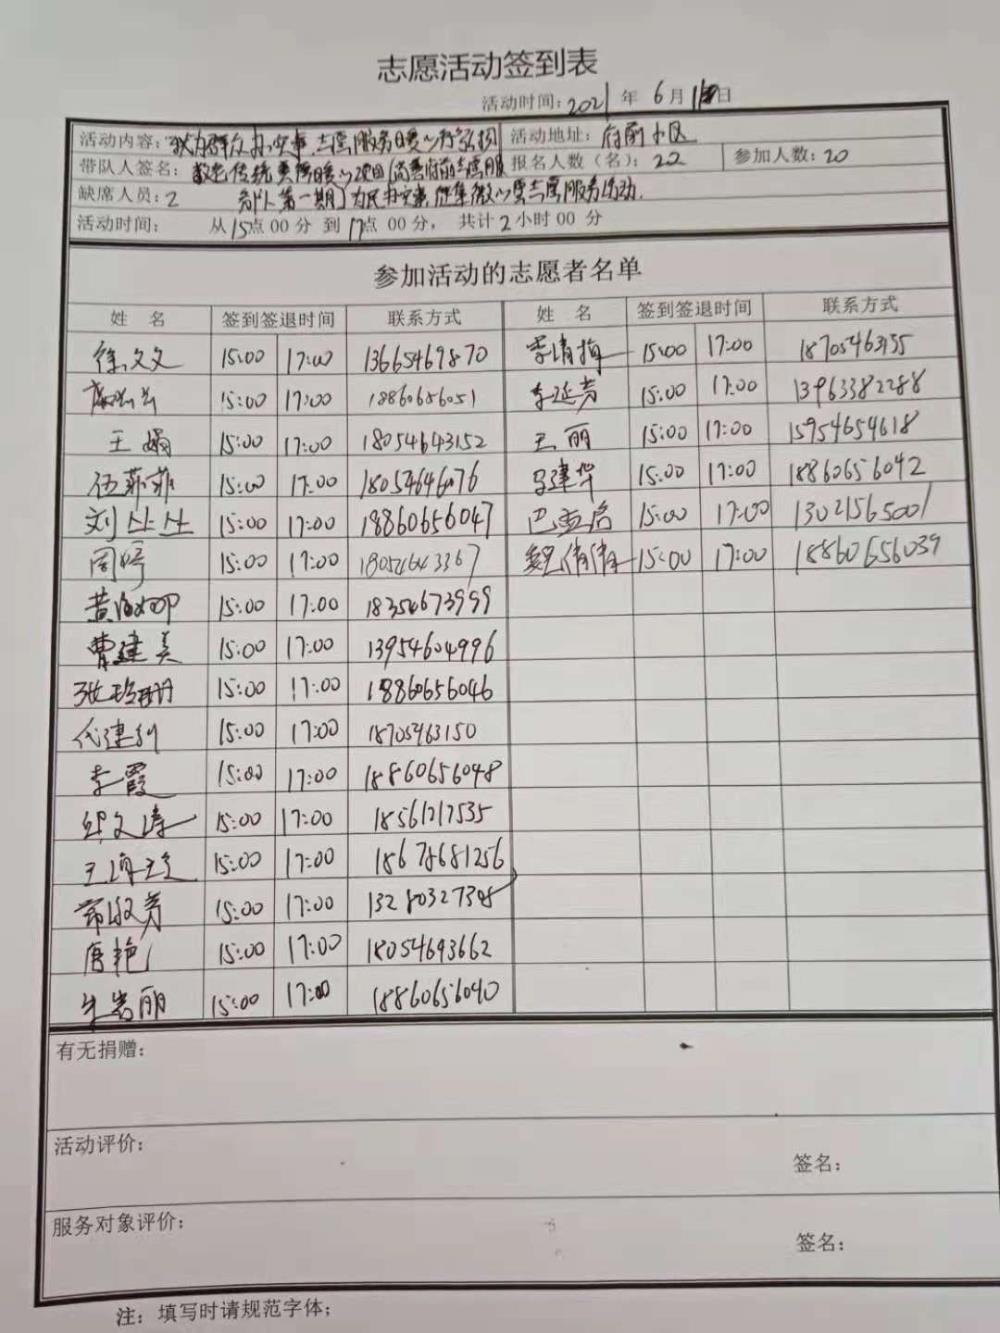 志愿活动签到表
活动时间：2021年6月1日
活动内容：我为群众办实事 志愿服务暖心行 活动地址：府前小区
带队人签名： 传统美 暖心 项目 府前志愿服 报名人数（名）：22 参加人数：20
缺席人员：2 第一期 为民办实事 征集微心愿志愿服务活动.
活动时间： 从15点00分 到17点00分， 共计2小时00分
参加活动的志愿者名单
姓 名 签到签退时间 联系方式 姓 名 签到签退时间 联系方式
徐文文 15:00 17:00 13665469870 李清梅 15:00 17:00 18705463155
15:00 17:00 18860656051 李延芳 15:00 17:00 13963382288
王娟 15:00 17:00 18054643152 王丽 15:00 17:00 15954654618
伍菲菲 15:00 17:00 18054646076 马建华 15:00 17:00 18860656042
刘丛丛 15:00 17:00 18860656047 巴 15:00 17:00 13021565001
周婷 15:00 17:00 18054643367 魏倩倩 15:00 17:00 18860656039
黄海 15:00 17:00 18354673999
曹建美 15:00 17:00 13954604996
张珊珊 15:00 17:00 18860656046
代建利 15:00 17:00 18705463150
李霞 15:00 17:00 18860656048
文涛 15:00 17:00 18561217535
王 15:00 17:00 18678681256
芳 15:00 17:00 13280327398
唐艳 15:00 17:00 18054693662
牛岩丽 15:00 17:00 18860656040
有无捐赠：
活动评价：
签名：
服务对象评价：
签名：
注：填写时请规范字体；